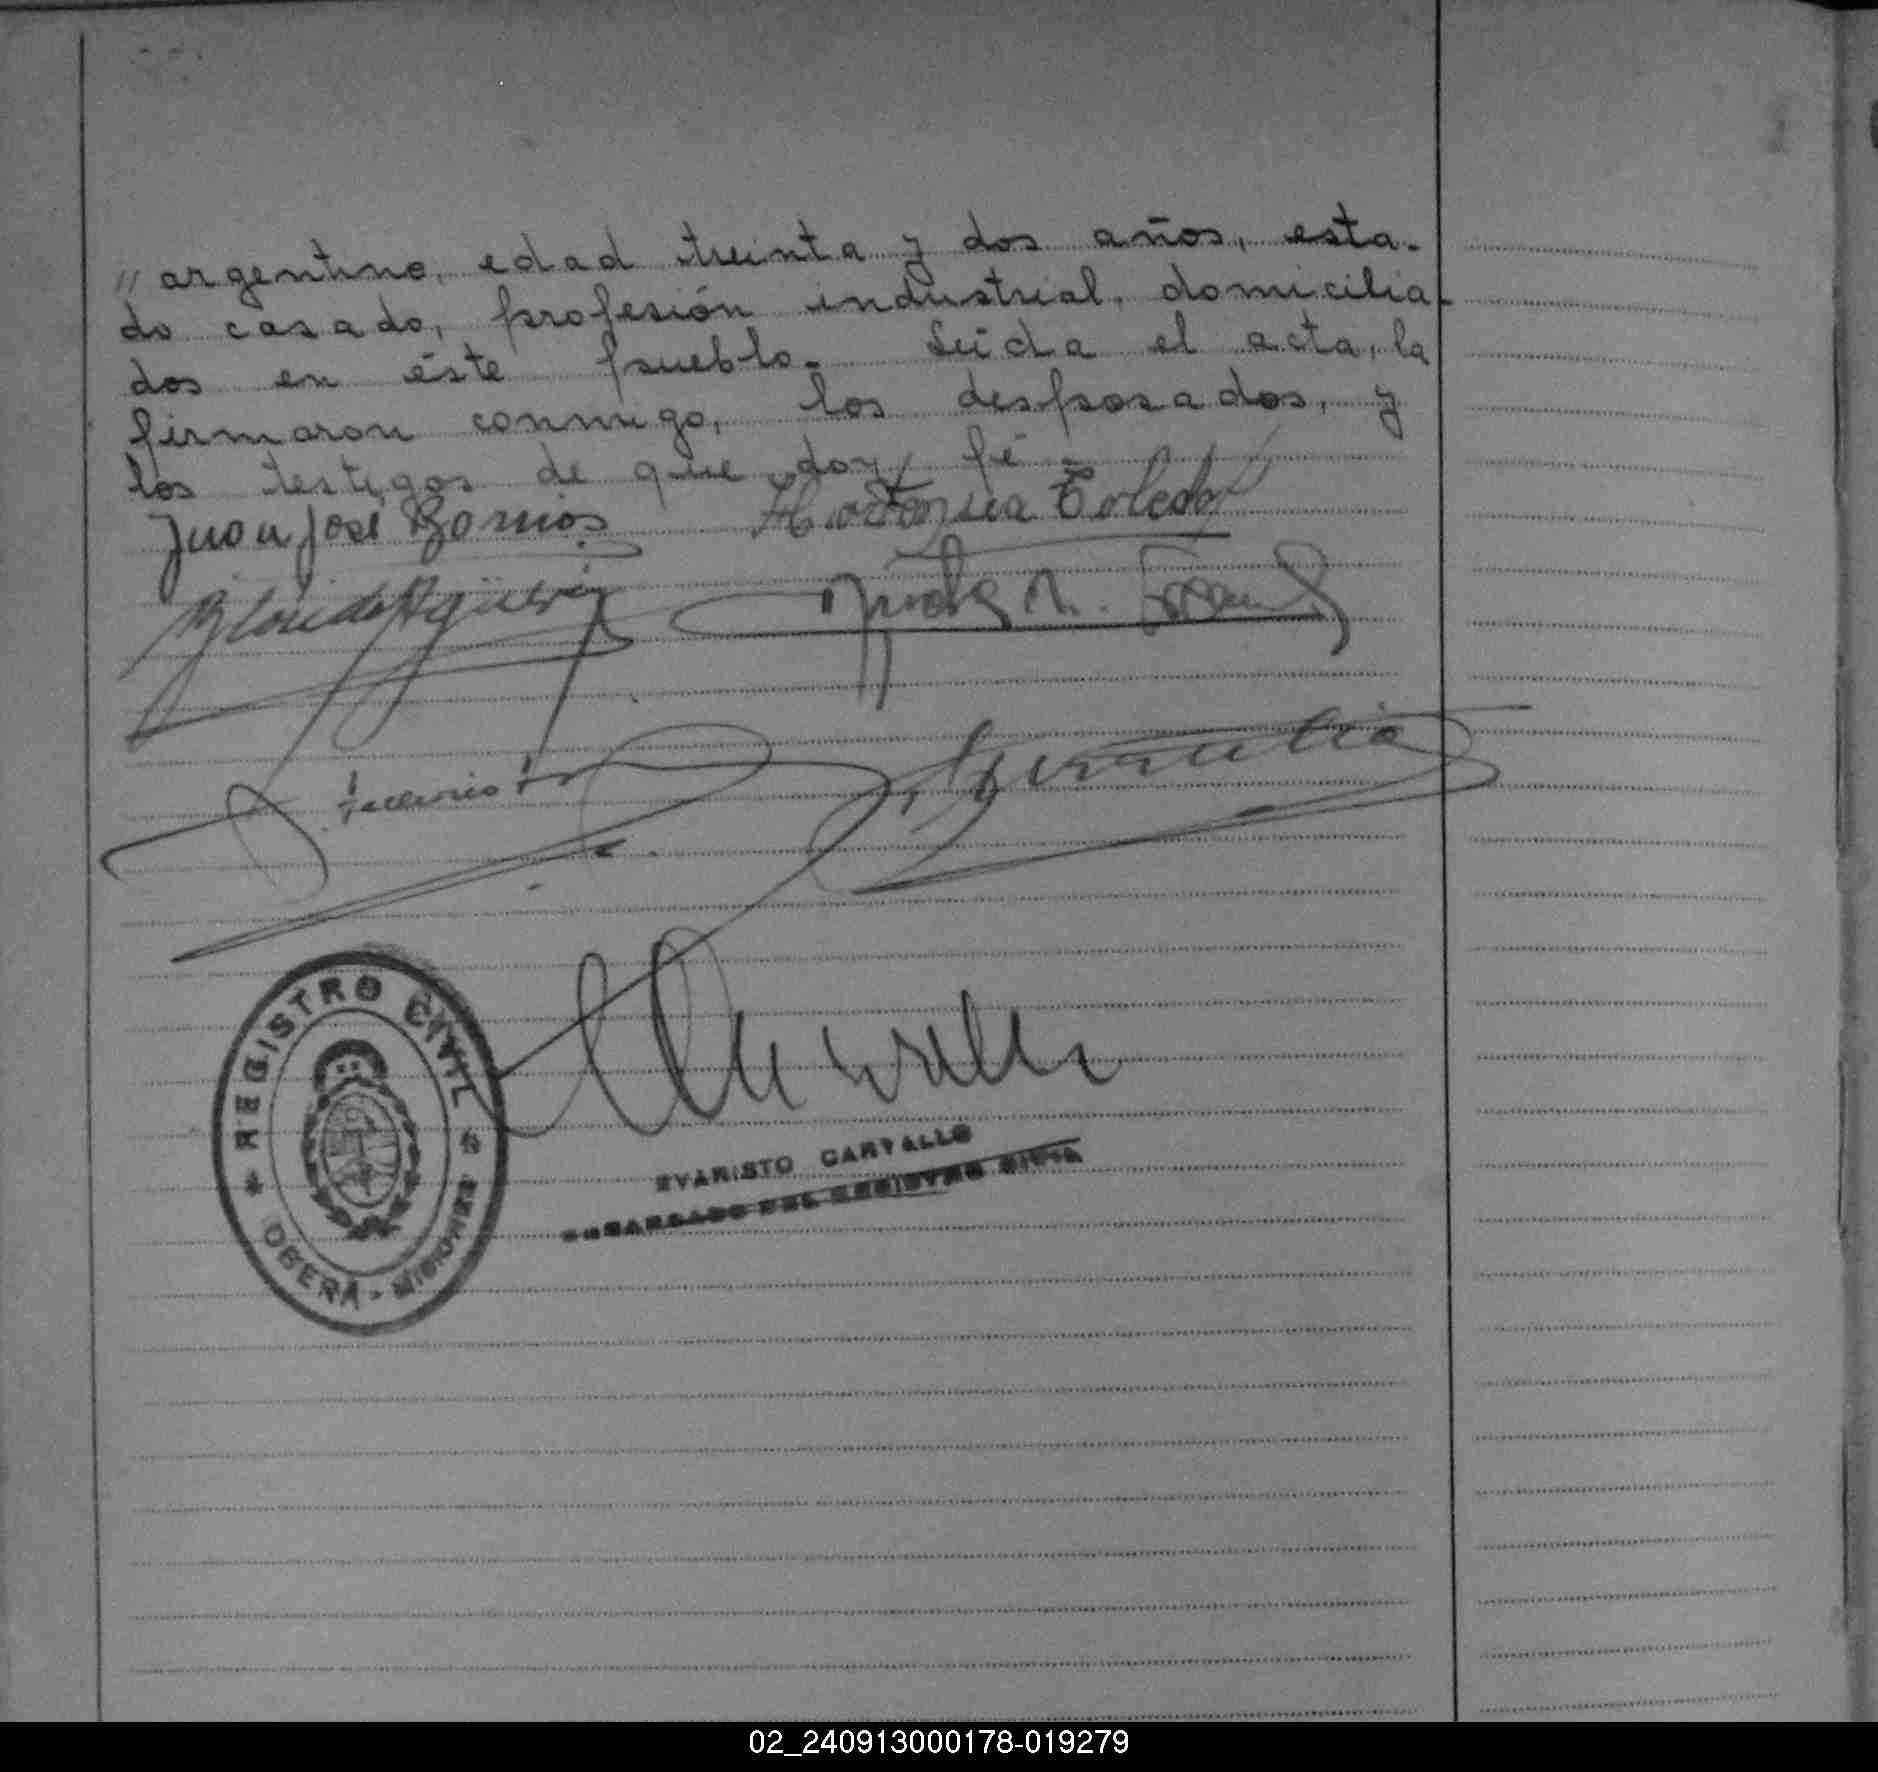 // argentino, edad treinta y dos años, esta-
do casado, profesión industrial, domicilia-
dos en éste pueblo.- Leída el acta, la
firmaron conmigo, los desposados, y
los testigos de que doy fé.-
Juan José Barrios Hortensia Toledo
REGISTRO CIVIL
OBERÁ - MISIONES
EVARISTO CARVALLO
ENCARGADO DEL REGISTRO CIVIL
02_240913000178-019279